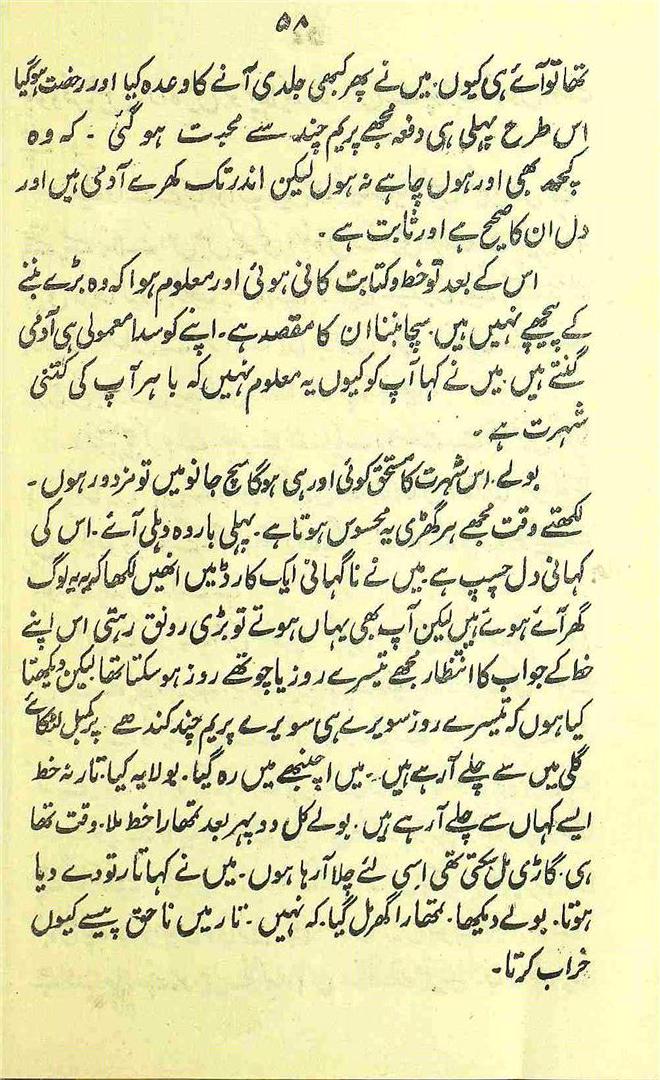 ۵۸
تھا تو آئے ہی کیوں۔ میں نے پھر کبھی جلدی آنے کا وعدہ کیا اور رخصت ہو گیا
اس طرح پہلی ہی دفعہ مجھے پریم چند سے محبت ہو گئی ۔ کہ وہ
کچھ بھی اور ہوں چاہے نہ ہوں لیکن اندر تک کھرے آدمی ہیں اور
دل ان کا صحیح ہے اور ثابت ہے ۔
اس کے بعد تو خط و کتابت کافی ہوئی اور معلوم ہوا کہ وہ بڑے بننے
کے پیچھے نہیں ہیں۔ سچا بننا ان کا مقصد ہے ۔ اپنے کو سدا معمولی ہی آدمی
گنتے ہیں۔ میں نے کہا آپ کو کیوں یہ معلوم نہیں کہ باہر آپ کی کتنی
شہرت ہے ۔
بولے۔ اس شہرت کا مستحق کوئی اور ہی ہوگا سچ جانو میں تو مزدور ہوں ۔
لکھتے وقت مجھے ہر گھڑی یہ محسوس ہوتا ہے ۔ پہلی بار وہ دہلی آئے ۔ اس کی
کہانی دل چسپ ہے ۔ میں نے ناگہانی ایک کارڈ میں انھیں لکھا کہ یہ یہ لوگ
گھر آئے ہوئے ہیں لیکن آپ بھی یہاں ہوتے تو بڑی رونق رہتی اس اپنے
خط کے جواب کا انتظار مجھے تیسرے روز یا چوتھے روز ہو سکتا تھا لیکن دیکھتا
کیا ہوں کہ تیسرے روز سویرے ہی سویرے پریم چند کندھے پر کمبل لٹکائے
گلی میں سے چلے آرہے ہیں ۔ میں اچنبھے میں رہ گیا ۔ بولا یہ کیا۔ تار نہ خط
ایسے کہاں سے چلے آرہے ہیں۔ بولے کل دوپہر بعد تمھارا خط ملا۔ وقت تھا
ہی۔ گاڑی مل سکتی تھی اسی لئے چلا آرہا ہوں ۔ میں نے کہا تار تو دے دیا
ہوتا۔ بولے دیکھا۔ تمھارا گھر مل گیا۔ کہ نہیں ۔ تار میں ناحق پیسے کیوں
خراب کرتا ۔